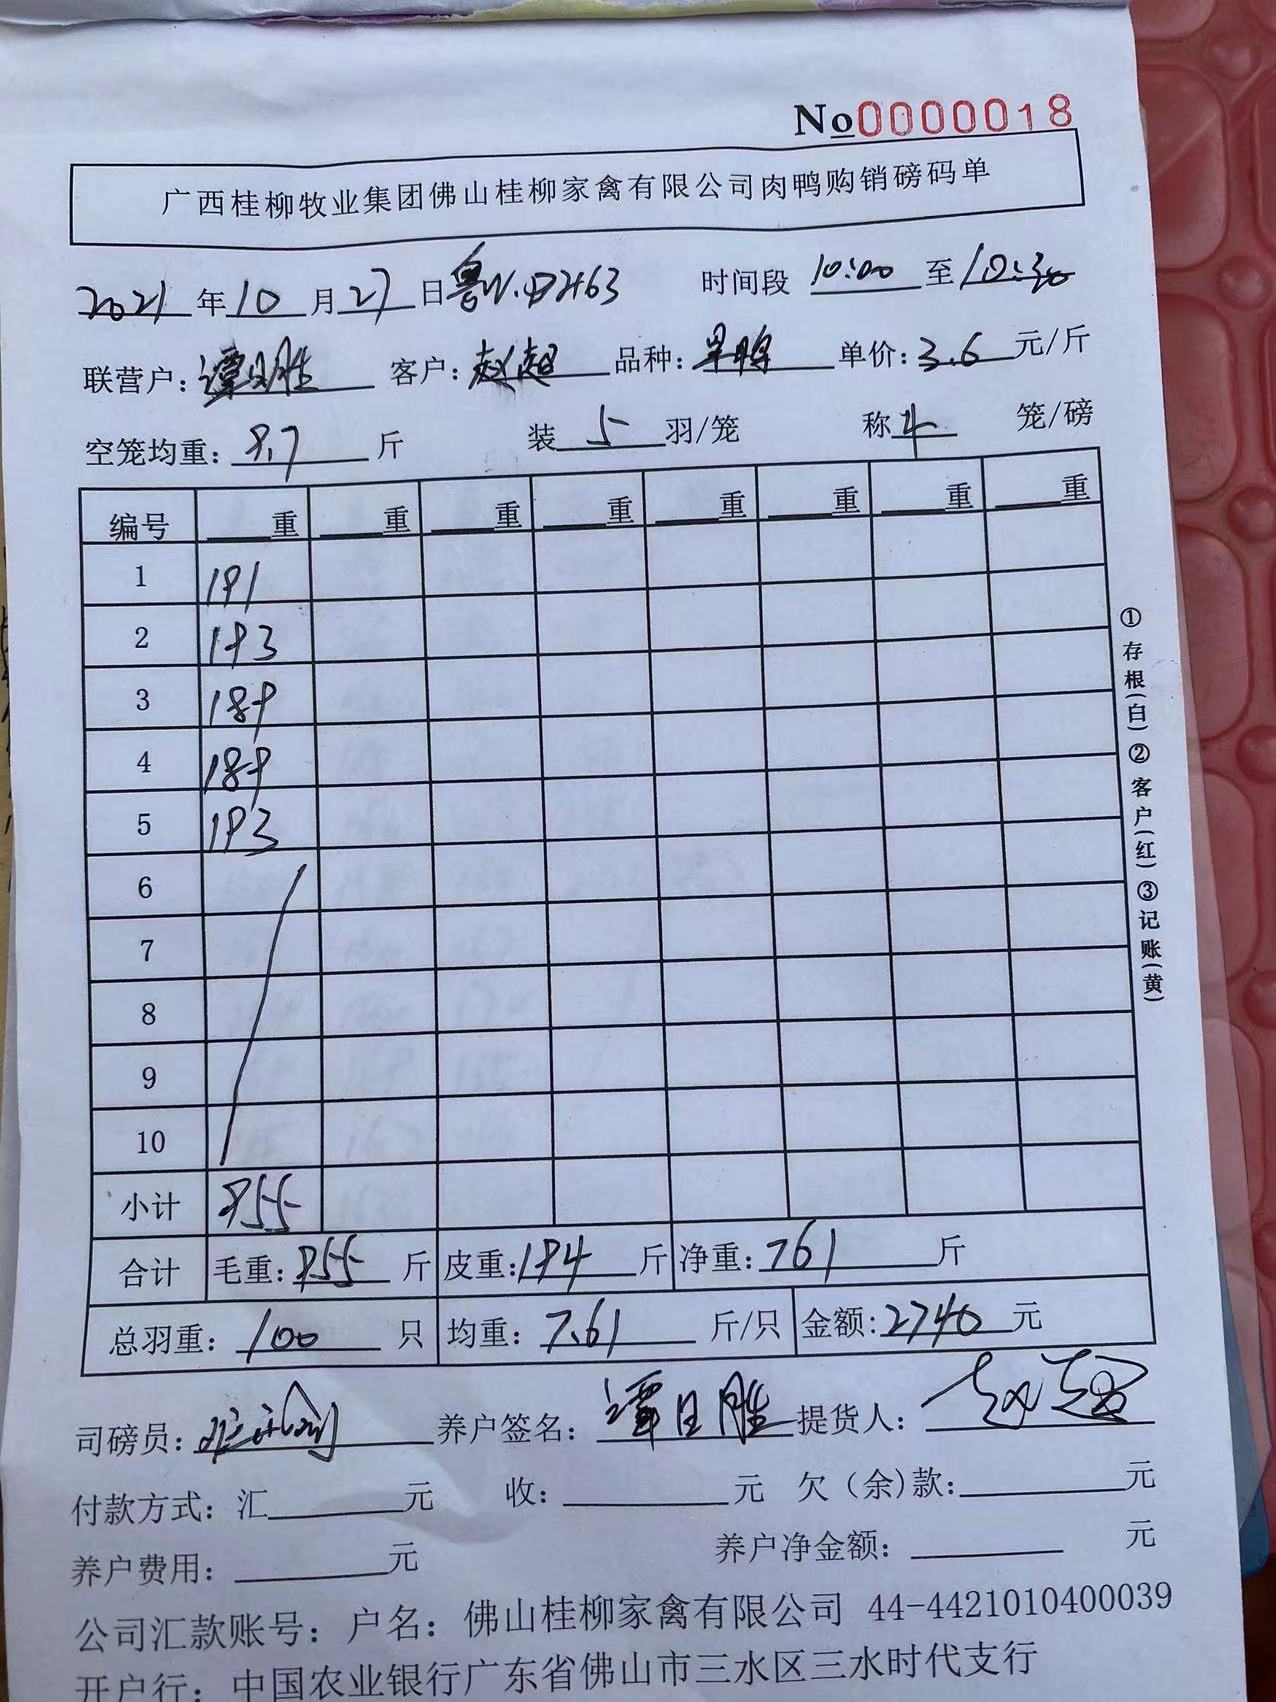 No0000018
广西桂柳牧业集团佛山桂柳家禽有限公司肉鸭购销磅码单
2021年10月27日 时间段 10:00 至 10:30
联营户: 谭日胜 客户: 赵超 品种: 单价: 3.6 元/斤
空笼均重: 9.7 斤 装 5 羽/笼 称 4 笼/磅
编号 重 重 重 重 重 重 重 重
1 191
2 193
3 189
4 189
5 193
6
7
8
9
10
小计 955
合计 毛重: 955 斤 皮重: 194 斤 净重: 761 斤
总羽重: 100 只 均重: 7.61 斤/只 金额: 2740 元
司磅员: 养户签名: 谭日胜 提货人: 赵超
付款方式: 汇 元 收: 元 欠(余)款: 元
养户费用: 元 养户净金额: 元
公司汇款账号: 户名: 佛山桂柳家禽有限公司 44-4421010400039
开户行: 中国农业银行广东省佛山市三水区三水时代支行
①存根(白)②客户(红)③记账(黄)